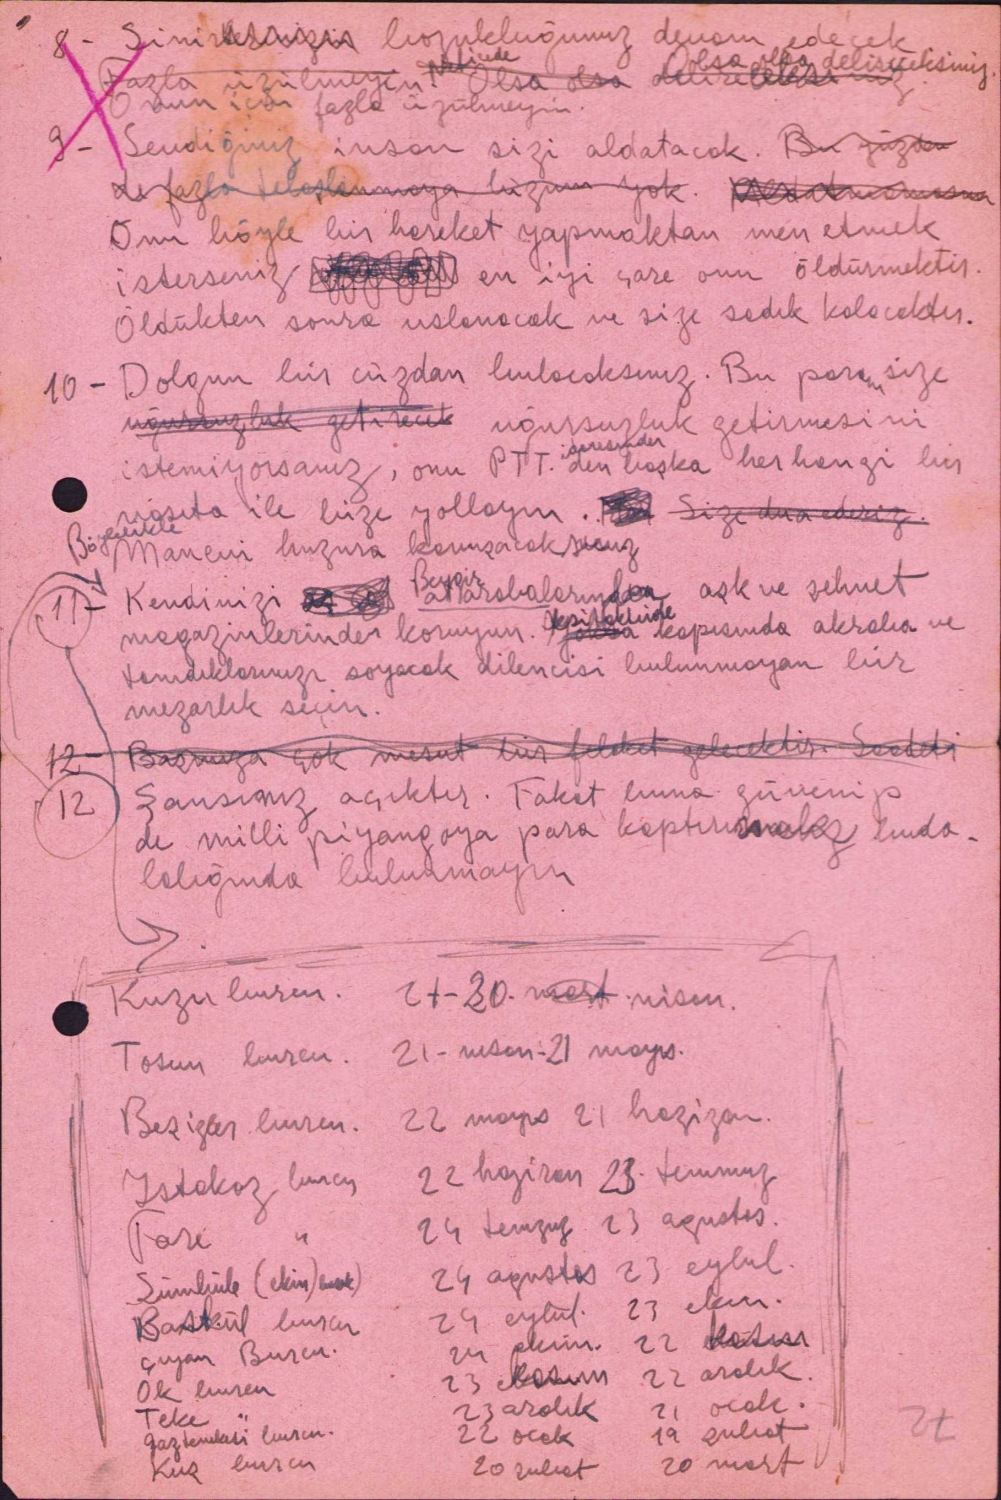 8- Sinir bozukluğunuz devam edecek
Fazla üzülmeyin. Neticede Olsa olsa Olsa olsa delireceksiniz.
Onun için fazla üzülmeyin.
9- Sevdiğiniz insan sizi aldatacak. Bu yüzden
de fazla telaşlanmaya lüzum yok.
Onu böyle bir hareket yapmaktan men etmek
isterseniz en iyi çare onu öldürmektir.
Öldükten sonra uslanacak ve size sadık kalacaktır.
10- Dolgun bir cüzdan bulacaksınız. Bu paranın size
uğursuzluk getirecek uğursuzluk getirmesini
istemiyorsanız, onu PTT. den başka herhangi bir
vasıta ile bize yollayın. Size dua ederiz.
Böylelikle
Manevi huzura kavuşacaksınız
11- Kendinizi Beygir at arabalarından aşk ve şehvet
magazinlerinden koruyun. kapısında akraba ve
tanıdıklarınızı soyacak dilencisi bulunmayan bir
mezarlık seçin.
12- Başınıza çok mesut bir felaket gelecektir. Saadeti
12 Şansınız açıktır. Fakat buna güvenip
de milli piyangoya para kaptırmak buda-
lalığında bulunmayın
Kuzu burcu. 21-20. mart nisan.
Tosun burcu. 21-nisan-21 mayıs.
Beşizler burcu. 22 mayıs 21 haziran.
Istakoz burcu 22 haziran 23 temmuz
Fare " 24 temmuz 23 agustos.
Sümbüle (ekin) 24 agustos 23 eylul.
Baskül burcu 24 eylul. 23 ekim.
Çıyan Burcu. 24 ekim. 22 kasım
Ok burcu 23 kasım 22 aralık.
Teke " 23 aralık 21 ocak.
Gaztenekesi burcu. 22 ocak 19 şubat
Kuş burcu 20 şubat 20 mart
27